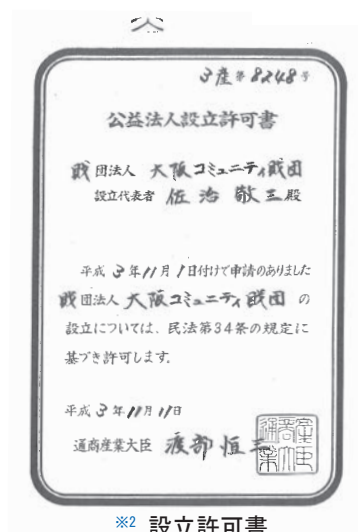 3産第8248号
公益法人設立許可書
財団法人 大阪コミュニティ財団
設立代表者 佐治敬三殿
平成3年11月1日付けで申請のありました
財団法人大阪コミュニティ財団の
設立については、民法第34条の規定に
基づき許可します。
平成3年11月11日
通商産業大臣 渡部恒三
※2 設立許可書